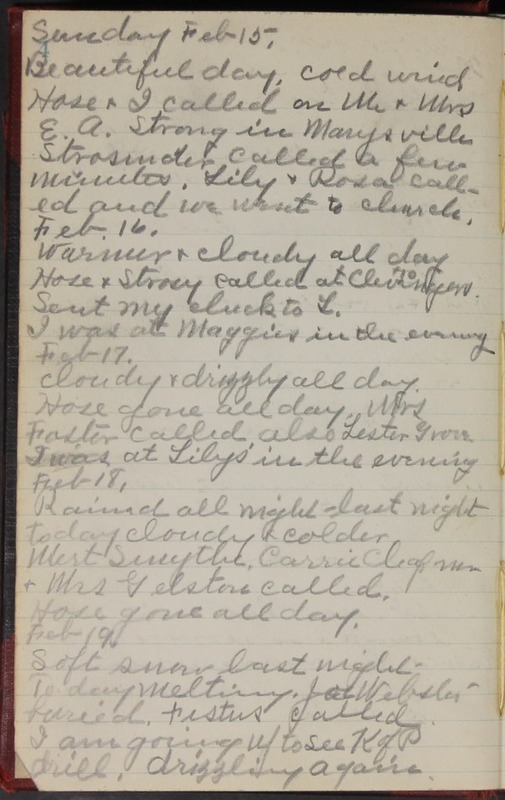 Sunday Feb 15,
Beautiful day, cold wind
Hose & I called on Mr & Mrs
E. A. Strong in Marysville
Strosnider called a few
minutes. Lily & Rosa call-
ed and we went to church.
Feb. 16.
Warmer & cloudy all day
Hose & Strosy called at Clevingers.
Sent my check to L.
I was at Maggies in the evening
Feb 17.
cloudy & drizzly all day.
Hose gone all day. Mrs
Foster called, also Lester
I was at Lilys in the evening
Feb 18,
Raind all night - last night
today cloudy & colder
Mert Smythe, Carrie
& Mrs Gelston called.
Hose gone all day.
Feb 19.
Soft snow last night-
Today melting. Webster
buried. Festus called
I am going up to see K of P
drill. drizzling again.